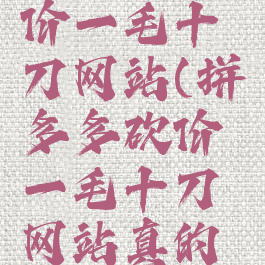 价一毛十
刀网站(拼
多多砍价
一毛十刀
网站真的